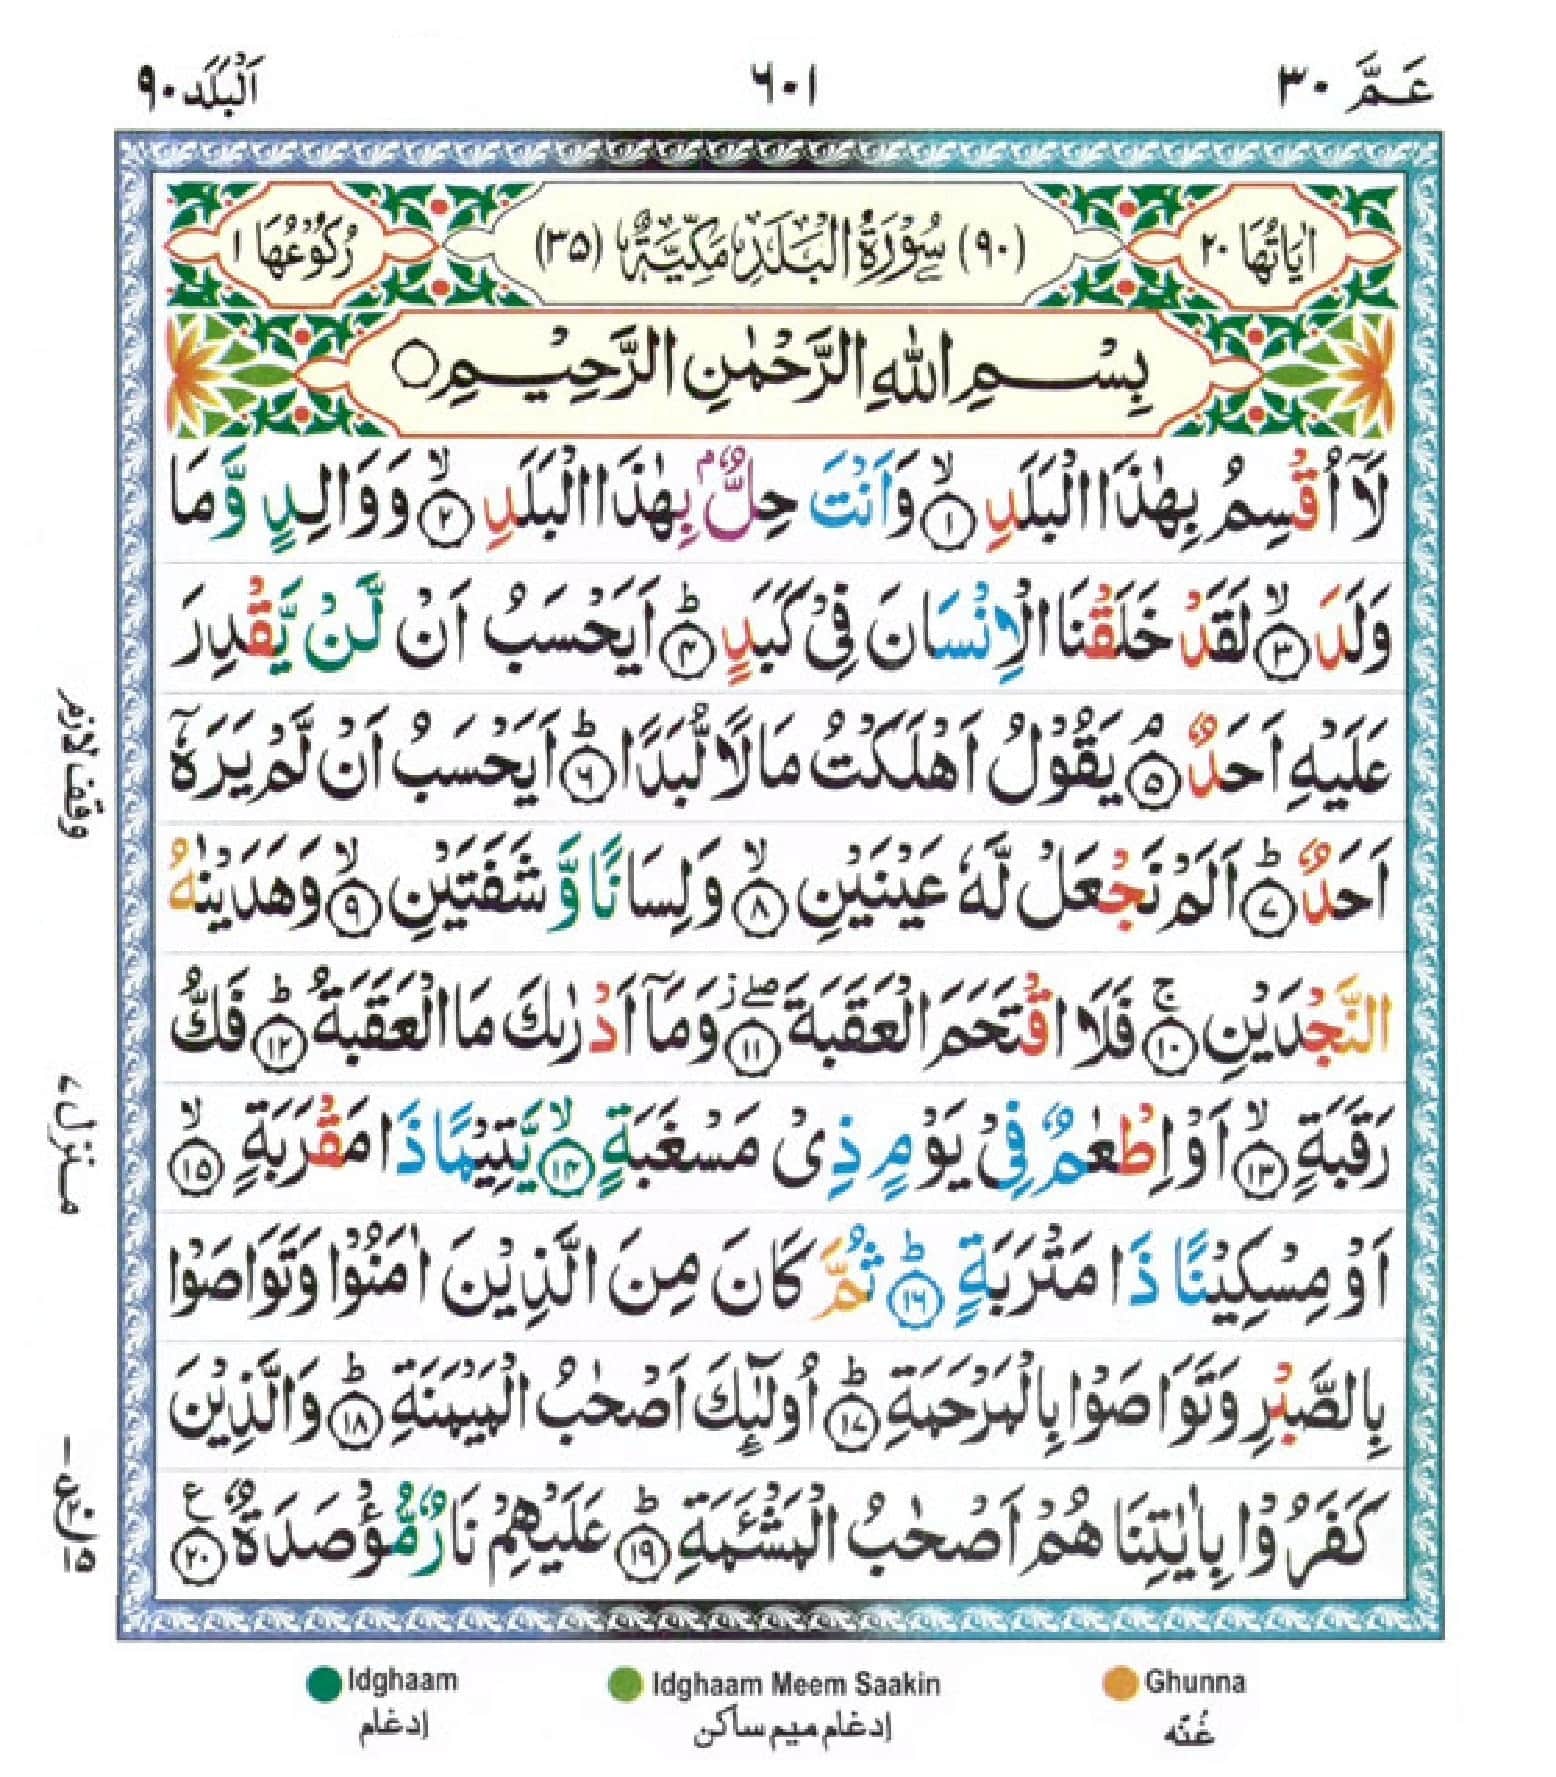 عَمَّ ٣٠
٦٠١
اَلْبَلَد ٩٠
اٰيَاتُهَا ٢٠
(٩٠) سُوْرَةُ الْبَلَدِ مَكِّيَّةٌ (٣٥)
رُكُوْعُهَا ١
بِسْمِ اللّٰهِ الرَّحْمٰنِ الرَّحِيْمِ ○
لَاۤ اُقْسِمُ بِهٰذَا الْبَلَدِ ۙ﴿١﴾ وَاَنْتَ حِلٌّۢ بِهٰذَا الْبَلَدِ ۙ﴿٢﴾ وَوَالِدٍ وَّمَا
وَلَدَ ۙ﴿٣﴾ لَقَدْ خَلَقْنَا الْاِنْسَانَ فِىْ كَبَدٍ ؕ﴿٤﴾ اَيَحْسَبُ اَنْ لَّنْ يَّقْدِرَ
عَلَيْهِ اَحَدٌ ۘ﴿٥﴾ يَقُوْلُ اَهْلَكْتُ مَالًا لُّبَدًا ؕ﴿٦﴾ اَيَحْسَبُ اَنْ لَّمْ يَرَهٗۤ
اَحَدٌ ؕ﴿٧﴾ اَلَمْ نَجْعَلْ لَّهٗ عَيْنَيْنِ ۙ﴿٨﴾ وَلِسَانًا وَّشَفَتَيْنِ ۙ﴿٩﴾ وَهَدَيْنٰهُ
النَّجْدَيْنِ ۚ﴿١٠﴾ فَلَا اقْتَحَمَ الْعَقَبَةَ ۖز﴿١١﴾ وَمَاۤ اَدْرٰىكَ مَا الْعَقَبَةُ ؕ﴿١٢﴾ فَكُّ
رَقَبَةٍ ۙ﴿١٣﴾ اَوْ اِطْعٰمٌ فِىْ يَوْمٍ ذِىْ مَسْغَبَةٍ ۙ﴿١٤﴾ يَّتِيْمًا ذَا مَقْرَبَةٍ ۙ﴿١٥﴾
اَوْ مِسْكِيْنًا ذَا مَتْرَبَةٍ ؕ﴿١٦﴾ ثُمَّ كَانَ مِنَ الَّذِيْنَ اٰمَنُوْا وَتَوَاصَوْا
بِالصَّبْرِ وَتَوَاصَوْا بِالْمَرْحَمَةِ ؕ﴿١٧﴾ اُولٰٓئِكَ اَصْحٰبُ الْمَيْمَنَةِ ؕ﴿١٨﴾ وَالَّذِيْنَ
كَفَرُوْا بِاٰيٰتِنَا هُمْ اَصْحٰبُ الْمَشْئَمَةِ ؕ﴿١٩﴾ عَلَيْهِمْ نَارٌ مُّؤْصَدَةٌ ﴿٢٠﴾ ع
وقف لازم
منزل ٧
Idghaam
إدغام
Idghaam Meem Saakin
إدغام ميم ساكن
Ghunna
غُنّه